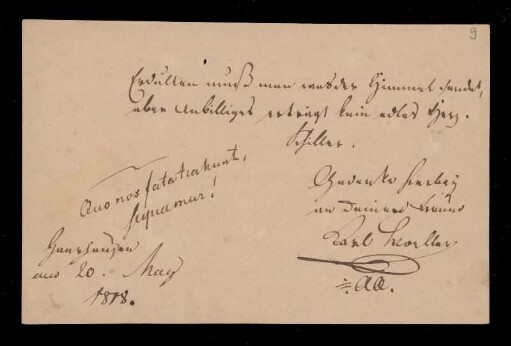 9
Erdulten muß man was der Himmel sendet,
aber Unbilliges erträgt kein edles Herz.
Schiller.
Quo nos fata trahunt,
sequamur!
Gedenke hierbey
an Deinen Freund
Karl
den 20. May
1818.